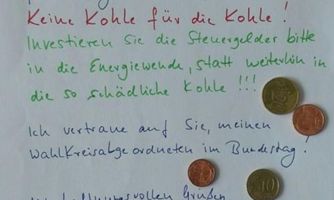 Keine Kohle für die Kohle !
Investieren Sie die Steuergelder bitte
in die Energiewende, statt weiterhin in
die so schädliche Kohle !!!
Ich vertraue auf Sie, meinen
Wahlkreisabgeordneten im Bundestag !
hoffnungsvollen Grüßen
10